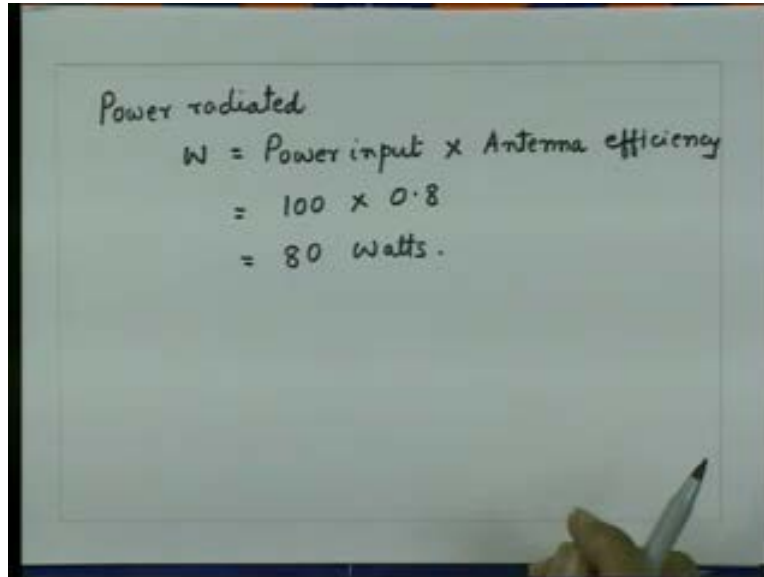 Power radiated
W = Power input × Antenna efficiency
= 100 × 0.8
= 80 Watts.